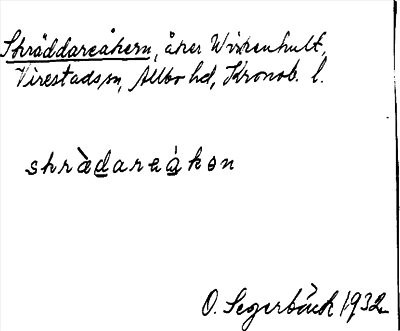 Skräddareåkern, åker Wirkenhult,
Virestads sn, Allbo hd, Kronob. l.
skrädareåkən
O. Segerbäck 1932